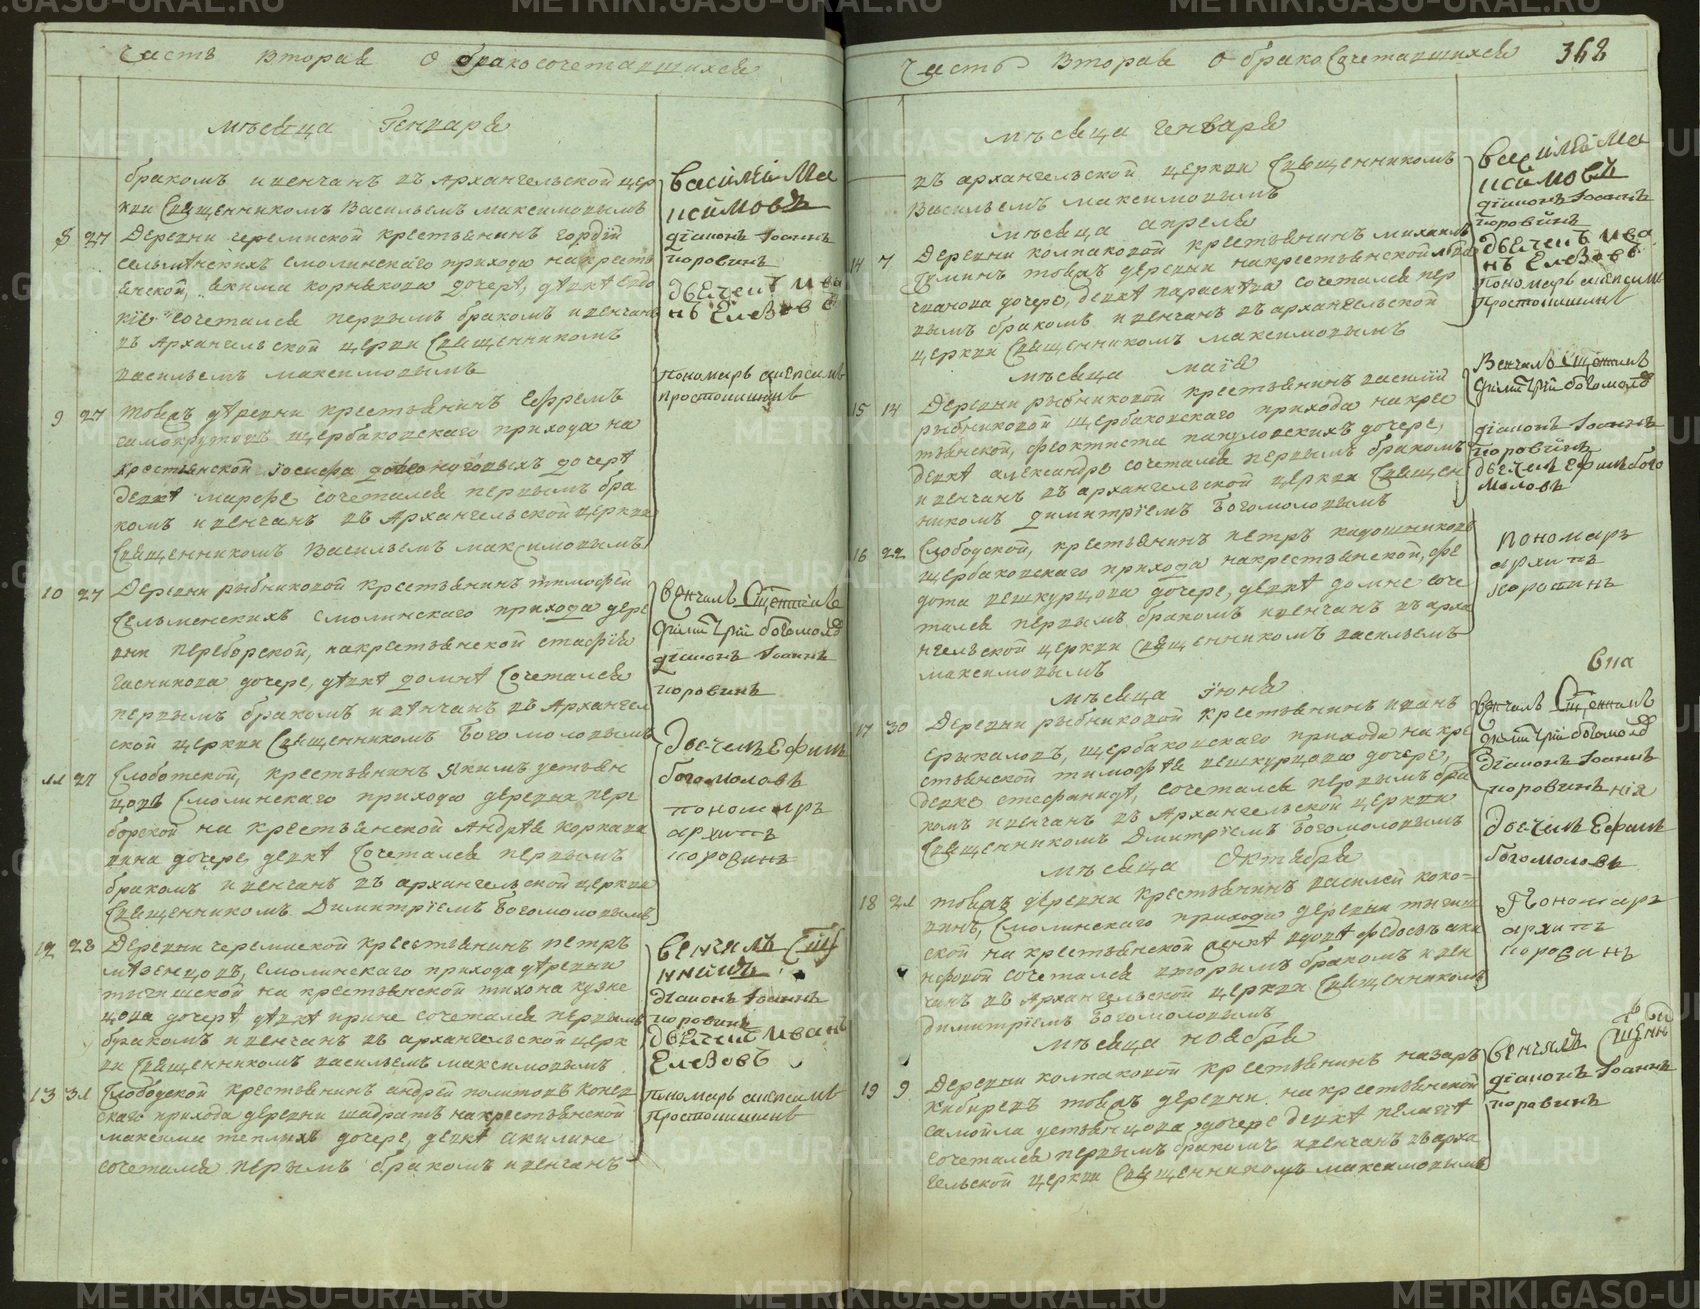 Часть Вторая О бракосочетавшихся
мѣсяца Генваря
бракомъ и венчанъ въ Архангельской цер
кви Священникомъ Васильемъ максимовымъ
8 27 Деревни черемиской крестьянинъ гордѣй
смолинскаго прихода на кресть
янской, екима корнякова дочерѣ, дѣвкѣ
сочетался первымъ бракомъ и венчанъ
въ Архангельской церкви Священникомъ
васильемъ максимовымъ
9 27 тояжъ деревни крестьянинъ Ефремъ
самокрутовъ щербаковскаго прихода на
крестьянской іосифа дочерѣ
девкѣ марфе сочетался первымъ бра
комъ и венчанъ въ Архангельской церкви
Священникомъ Васильемъ максимовымъ
10 27 Деревни рыбниковой крестьянинъ тимофей
Сельменскихъ смолинскаго прихода дере
вни переборской, на крестьянской
дочере, дѣвкѣ домнѣ Сочетался
первымъ бракомъ и венчанъ въ Архангел
ской церкви Священникомъ Богомоловымъ
11 27 Слободской, крестьянинъ якимъ устьян
цовъ Смолинскаго прихода деревни пере
борской на крестьянской Андрѣя
дочере, девкѣ Сочетался первымъ
бракомъ и венчанъ въ архангельской церкви
Священникомъ Димитріемъ Богомоловымъ
12 28 Деревни черемиской крестьянинъ петръ
мезенцовъ, смолинскаго прихода деревни
на крестьянской тихона кузне
цова дочерѣ дѣвкѣ ирине сочетался первымъ
бракомъ и венчанъ въ архангельской церк
ви Священникомъ васильемъ максимовымъ
13 31 Слободской крестьянинъ андрей политовъ
скаго прихода деревни на крестьянской
максима теплыхъ дочере, девкѣ акилине
сочетался первымъ бракомъ и венчанъ
василій Ма
ксимовъ
діаконъ Іоаннъ
коровинъ
дьячекъ Ива
нъ Елезовъ
пономарь
простолишинъ
Венчалъ Священникъ
Димитрій богомоловъ
діаконъ Іоаннъ
коровинъ
Дьячекъ Ефимъ
богомоловъ
пономарь
архипъ
коровинъ
венчалъ Свящ
нникъ
діаконъ Іоаннъ
коровинъ
дьячекъ Иванъ
Елезовъ
пономарь
простолишинъ
Часть Вторая О бракосочетавшихся 362
мѣсяца генваря
въ архангельской церкви Священникомъ
Васильемъ максимовымъ
мѣсяца апреля
14 7 Деревни колпаковой крестьянинъ михаилъ
тояжъ деревни на крестьянской
дочере, девкѣ параскевѣ сочетался пер
вымъ бракомъ и венчанъ въ архангельской
церкви Священникомъ максимовымъ
мѣсяца маія
15 14 Деревни рыбниковой крестьянинъ василій
щербаковскаго прихода на крес
тьянской, феоктиста дочере,
девкѣ александре сочетался первымъ бракомъ
и венчанъ въ архангельской церкви Священ
никомъ димитріемъ Богомоловымъ
16 22 Слободской, крестьянинъ петръ кадошниковъ
щербаковскаго прихода на крестьянской, фе
дота вешкурцова дочере, девкѣ домне соче
тался первымъ бракомъ и венчанъ въ арха
нгельской церкви Священникомъ васильемъ
максимовымъ
мѣсяца Іюня
17 30 Деревни рыбниковой крестьянинъ иванъ
ерыкаловъ, щербаковскаго прихода на кре
стьянской тимофѣя вешкурцова дочере,
девке стефанидѣ, сочетался первымъ бра
комъ и венчанъ въ Архангельской церкви
Священникомъ Димитріемъ Богомоловымъ
мѣсяца Октября
18 21 тояжъ деревни крестьянинъ василей коко=
ринъ, Смолинскаго прихода деревни
ской на крестьянской
сочетался вторымъ бракомъ и вен
чанъ въ Архангельской церкви Священникомъ
димитріемъ Богомоловымъ
мѣсяца ноября
19 9 Деревни колпаковой крестьянинъ назаръ
кибиревъ тояжъ деревни на крестьянской
самойла устьянцова дочере девкѣ пелагеѣ
сочетался первымъ бракомъ и венчанъ въ арха
гельской церкви Священникомъ максимовымъ
василій Ма
ксимовъ
діаконъ Іоаннъ
коровинъ
дьячекъ Ива
нъ Елезовъ
пономарь
простолишинъ
Венчалъ Священникъ
Димитрій богомоловъ
діаконъ Іоаннъ
коровинъ
дьячекъ Ефимъ бого
моловъ
пономарь
архипъ
коровинъ
венчалъ Священникъ
Димитрій богомоловъ
діаконъ Іоаннъ
коровинъ
дьячекъ Ефимъ
богомоловъ
Пономарь
архипъ
коровинъ
венчалъ
діаконъ Іоаннъ
коровинъ
METRIKI.GASO-URAL.RU